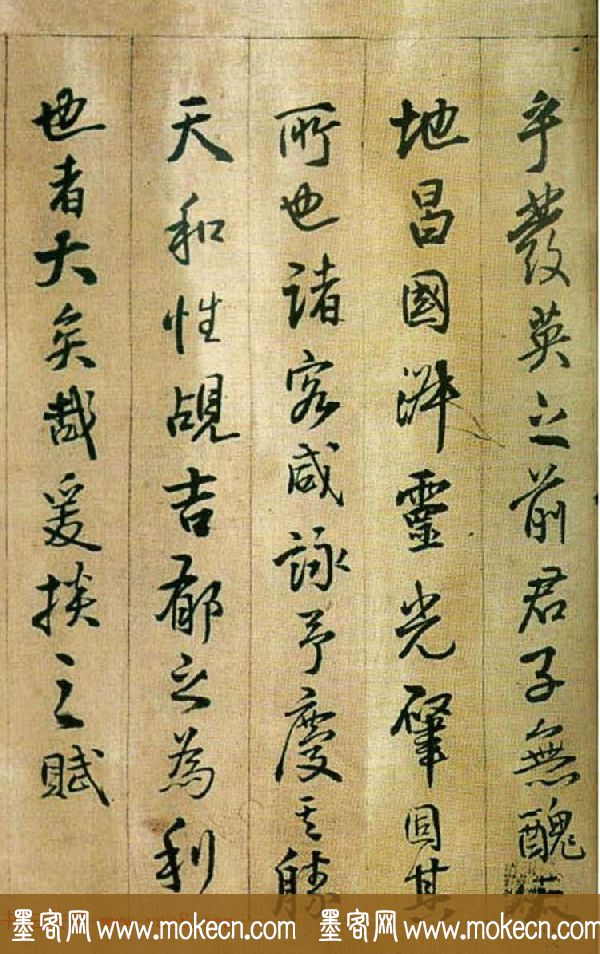 乎發英之前君子無醜
地昌國靈光肇固其
所也諸客咸詠予慶其
天和性覘吉郁之為利
也者大矣哉爰掞之賦
墨客网 www.mokecn.com 墨客网 www.mokecn.com